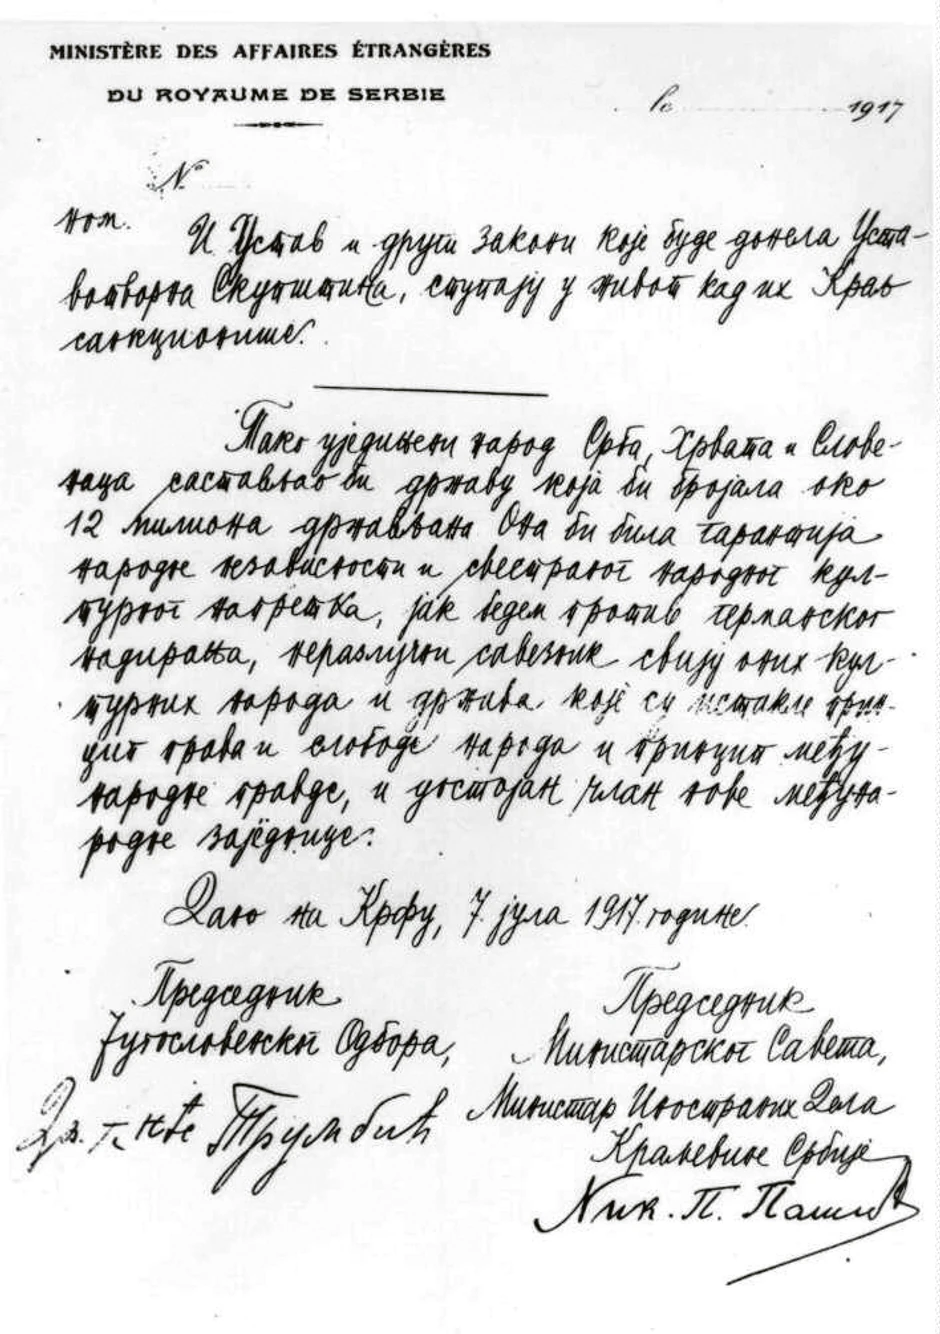 MINISTÈRE DES AFFAIRES ÉTRANGÈRES
DU ROYAUME DE SERBIE
le 1917
No
ном.
И Устав и други закони које буде донела Уста-
вотворна Скупштина, ступају у живот кад их Краљ
санкционише.
Тако уједињени народ Срба, Хрвата и Слове-
наца састављао би државу која би бројала око
12 милиона држављана. Она би била гаранција
народне независности и свестраног народног кул-
турног напретка, јак бедем против германског
надирања, неразлучни савезник свију оних кул-
турних народа и држава које су истакле прин-
цип права и слободе народа и принцип међу-
народне правде, и достојан члан нове међуна-
родне заједнице.
Дано на Крфу, 7. јула 1917. године.
Председник
Југословенског Одбора,
Др. Трумбић
Председник
Министарског Савета,
Министар Иностраних Дела
Краљевине Србије
Ник. П. Пашић